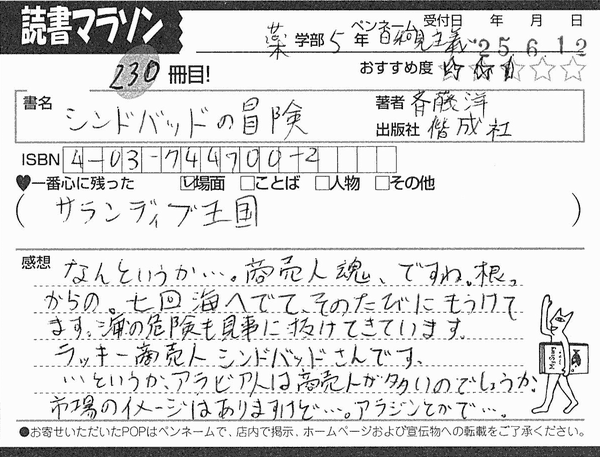 読書マラソン
薬 学部 5 年 ペンネーム 日和見主義 受付日 25 年 6 月 12 日
230 冊目! おすすめ度 ★★★☆☆☆
書名 シンドバッドの冒険
著者 斉藤洋
出版社 偕成社
ISBN 4-03-744700-2
♥一番心に残った ☑場面 □ことば □人物 □その他
(サランディブ王国)
感想 なんというか…。商売人魂、ですね。根っ
からの。七回海へでて、そのたびにもうけて
ます。海の危険も見事に抜けてきています。
ラッキー商売人シンドバッドさんです。
…というか、アラビア人は商売人が多いのでしょうか。
市場のイメージはありますけど…。アラジンとかで…。
●お寄せいただいたPOPはペンネームで、店内で掲示、ホームページおよび宣伝物への転載をご了承ください。